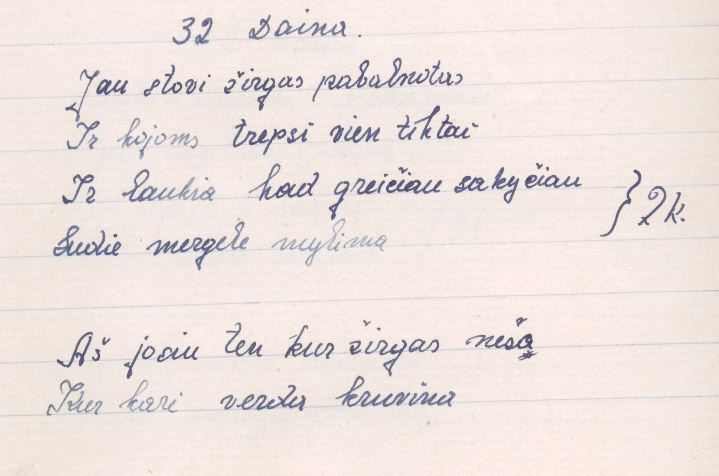 32 Daina.
Jau stovi žirgas pabalnotas
Ir kojoms trepsi vien tiktai
Ir laukia kad greičiau sakyčiau } 2k.
Sudie mergele mylima
Aš josiu ten kur žirgas neša
Kur kari verda kruvina